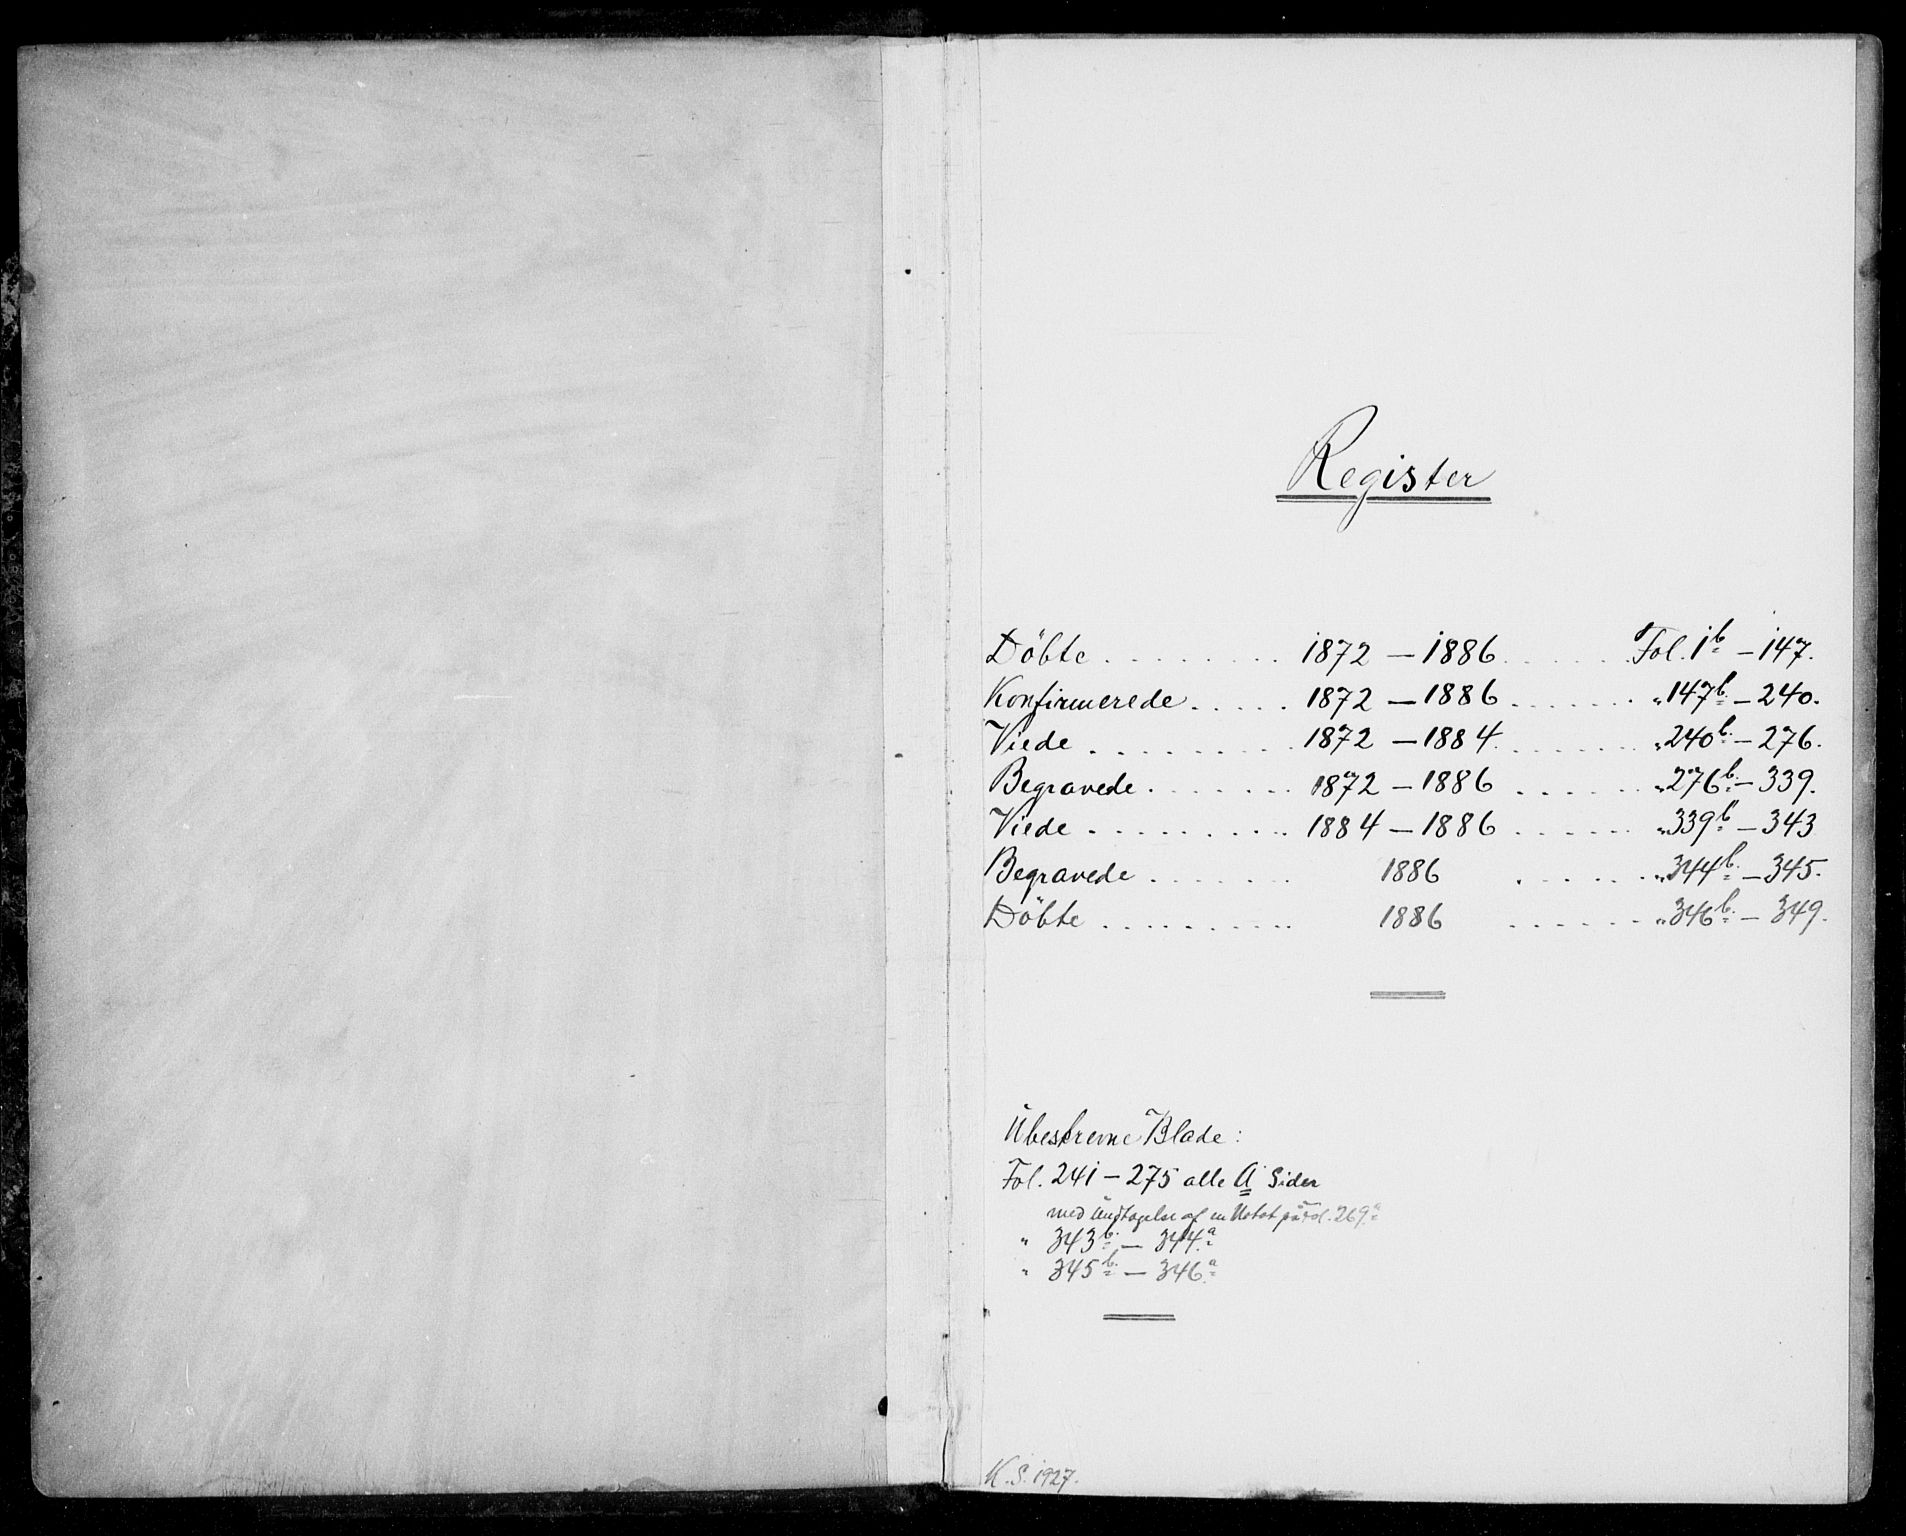 Register
Döbte . . . . . . . . . 1872 — 1886 . . . . . . Fol. 1b — 147.
Konfirmerede . . . . . 1872 — 1886 . . . . . . . „ 147b. — 240.
Viede . . . . . . . . . . 1872 — 1884 . . . . . . . „ 240b. — 276.
Begravede . . . . . . . 1872 — 1886 . . . . . . „ 276b. — 339.
Viede . . . . . . . . . . 1884 — 1886 . . . . . . „ 339b — 343
Begravede . . . . . . . 1886 . . . . . . „ 344b. — 345.
Döbte . . . . . . . . . . 1886 . . . . . . „ 346b. — 349.
Ubeskrevne Blade:
Fol. 241 — 275 alle A Sider
med Undtagelse af en Notat på Fol. 269a
„ 343b. — 344.a
„ 345b. — 346.a
K. S. 1927.